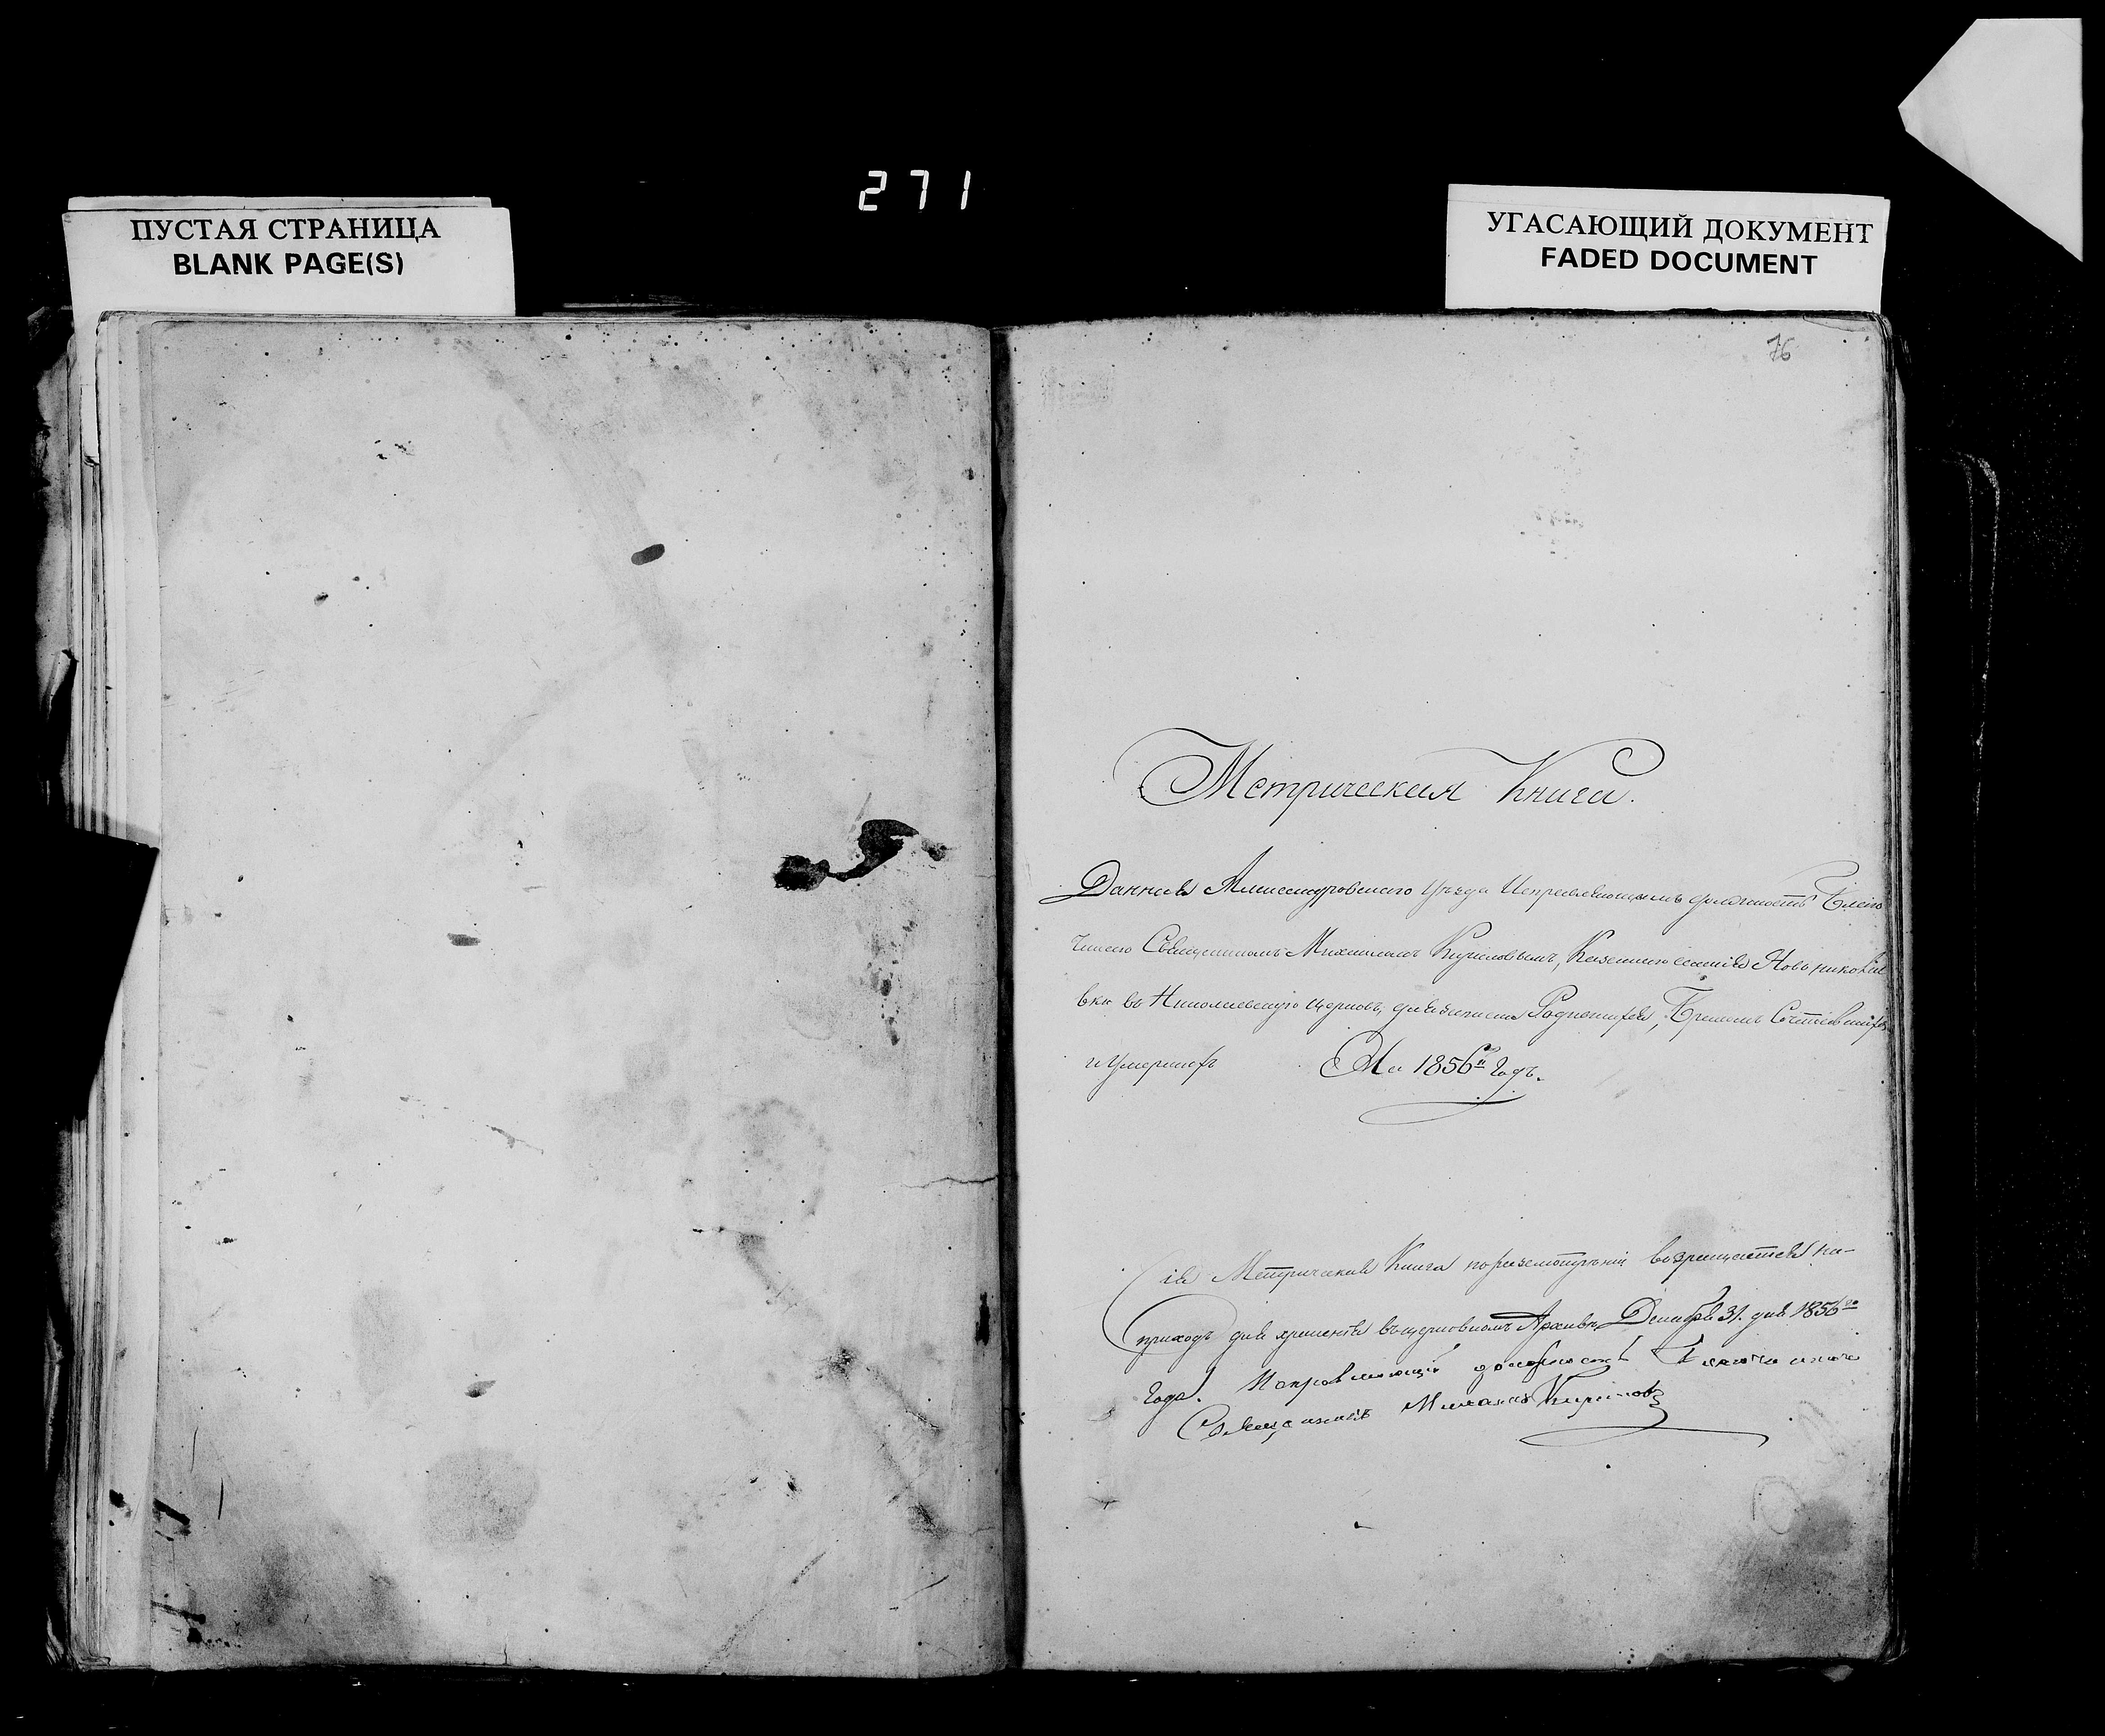 271
ПУСТАЯ СТРАНИЦА
BLANK PAGE(S)
УГАСАЮЩИЙ ДОКУМЕНТ
FADED DOCUMENT
76
Метрическая Книга.
Данная Александровскаго Уезда Исправляющимъ должность Благо
чинаго Священникомъ Михаиломъ Кириловымъ, Казеннаго селенія Новониколае
вки въ Николаевскую церковь, для записки Родившихся, Бракомъ Сочтавшихся
и Умершихъ На 1856й Годъ.
Сія Метрическая Книга по разсмотреніи возращается на
приходъ для храненія въ церковномъ Архиве, Декабря 31. дня 1856го
Года. Исправляющій должность Благочиннаго
Священникъ Михаилъ Кириловъ